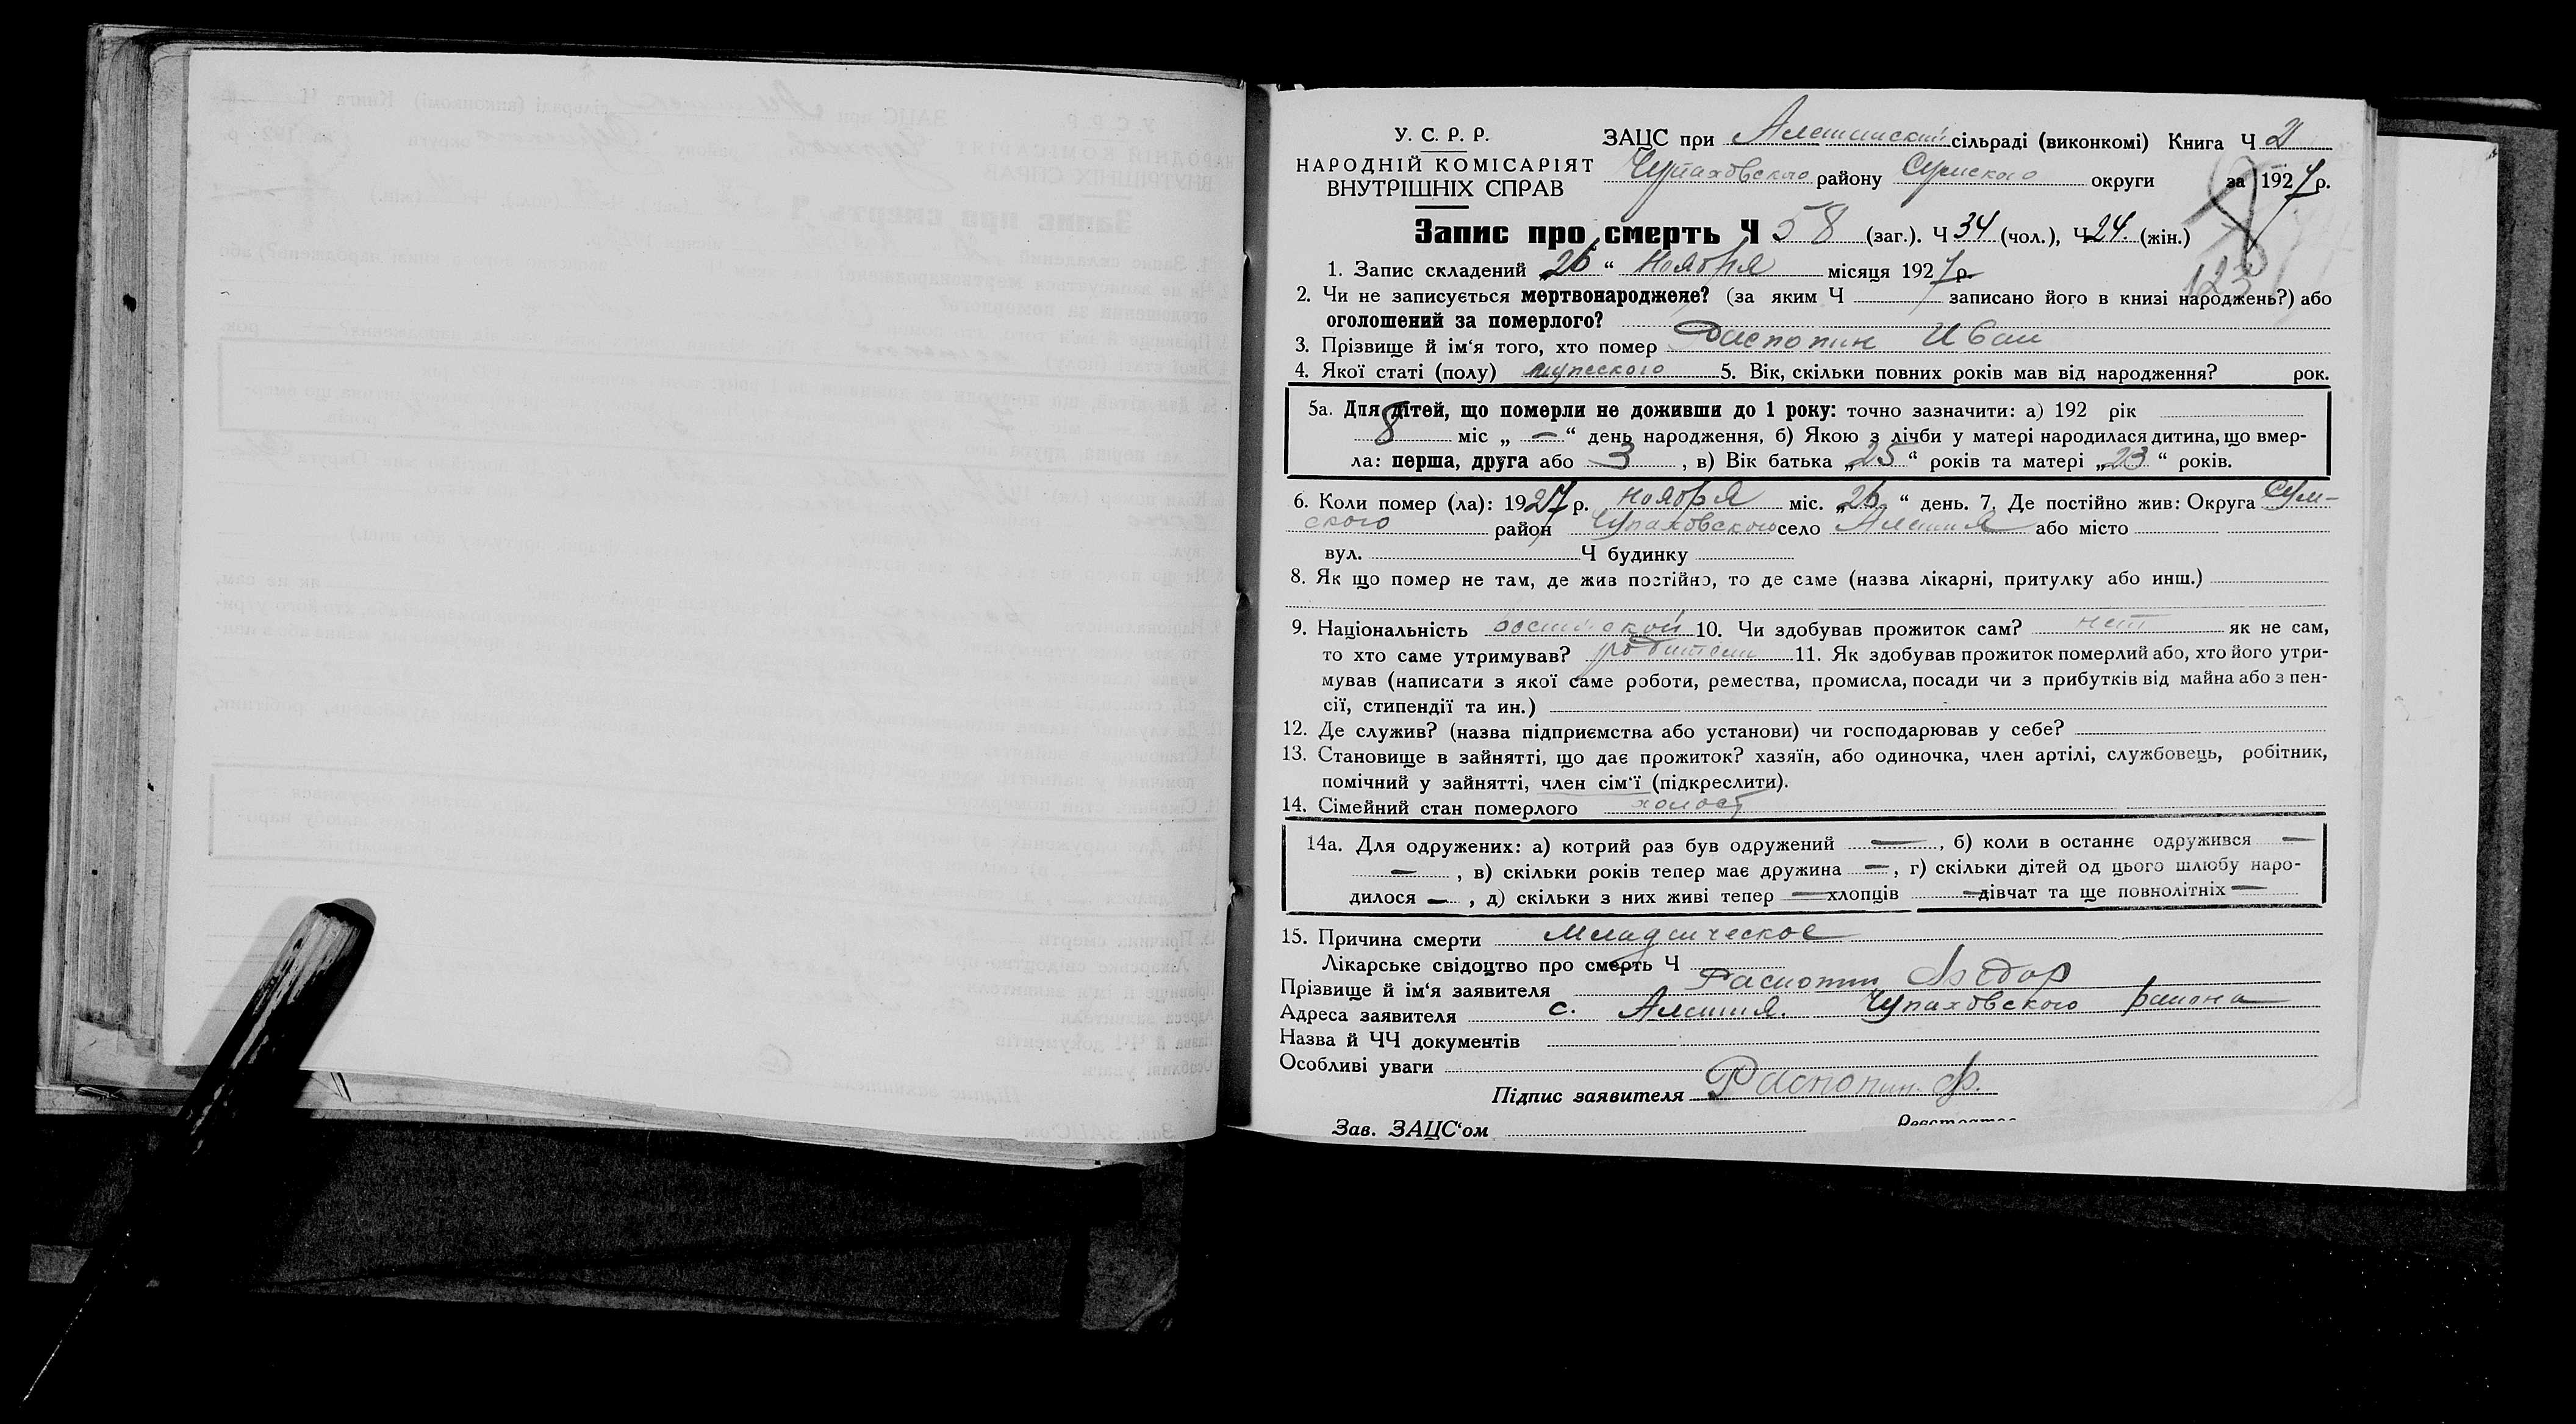 У. С. Р. Р.
НАРОДНІЙ КОМІСАРІЯТ
ВНУТРІШНІХ СПРАВ
ЗАЦС при Алешинский сільраді (виконкомі) Книга Ч 2
Чупаховского району Сумского округи за 1927 р.
123
Запис про смерть Ч 58 (заг.). Ч 34 (чол.), Ч 24. (жін.)
1. Запис складений „26“ Ноября місяця 1927 р.
2. Чи не записується мертвонароджене? (за яким Ч записано його в книзі народжень?) або
оголошений за померлого?
3. Прізвище й ім‘я того, хто помер Распопин Иван
4. Якої статі (полу) мужеского 5. Вік, скільки повних років мав від народження? рок.
5а. Для дітей, що померли не доживши до 1 року: точно зазначити: а) 192 рік
8 міс „ — “ день народження, б) Якою з лічби у матері народилася дитина, що вмер-
ла: перша, друга або 3 , в) Вік батька „25“ років та матері „23“ років.
6. Коли помер (ла): 1927 р. ноября міс. „26“ день. 7. Де постійно жив: Округа Сум-
ского район Чупаховского село Алешня або місто
вул. Ч будинку
8. Як що помер не там, де жив постійно, то де саме (назва лікарні, притулку або инш.)
9. Національність 10. Чи здобував прожиток сам? нет як не сам,
то хто саме утримував? родители 11. Як здобував прожиток померлий або, хто його утри-
мував (написати з якої саме роботи, ремества, промисла, посади чи з прибутків від майна або з пен-
сії, стипендії та ин.)
12. Де служив? (назва підприємства або установи) чи господарював у себе?
13. Становище в зайнятті, що дає прожиток? хазяїн, або одиночка, член артілі, службовець, робітник,
помічний у зайнятті, член сім‘ї (підкреслити).
14. Сімейний стан померлого холост
14а. Для одружених: а) котрий раз був одружений — , б) коли в останнє одружився —
— , в) скільки років тепер має дружина — , г) скільки дітей од цього шлюбу наро-
дилося — , д) скільки з них живі тепер — хлопців — дівчат та ще повнолітніх —
15. Причина смерти Младенческое
Лікарське свідоцтво про смерть Ч
Прізвище й ім‘я заявителя Распопин Федор
Адреса заявителя с. Алешня. Чупаховского района
Назва й ЧЧ документів
Особливі уваги
Підпис заявителя Распопин. Ф.
Зав. ЗАЦС‘ом